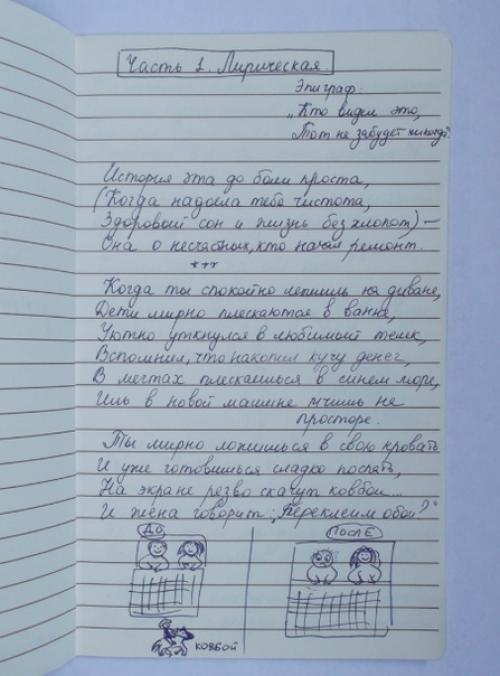 Часть 1. Лирическая.
Эпиграф:
„Кто видел это,
Тот не забудет никогда"
История эта до боли проста,
(Когда надоела тебе чистота,
Здоровый сон и жизнь без хлопот) —
Она о несчастных, кто начал ремонт.
***
Когда ты спокойно лежишь на диване,
Дети мирно плескаются в ванне,
Уютно уткнулся в любимый телек,
Вспомнил, что накопил кучу денег,
В мечтах плескаешься в синем море,
Иль в новой машине мчишь на
просторе.
Ты мирно ложишься в свою кровать
И уже готовишься сладко поспать,
На экране резво скачут ковбои...
И жена говорит: „Переклеим обои?"
ДО
ПОСЛЕ
КОВБОЙ